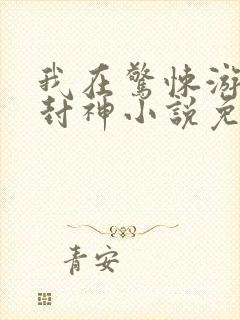 我在驚悚游
封神小說免
青安